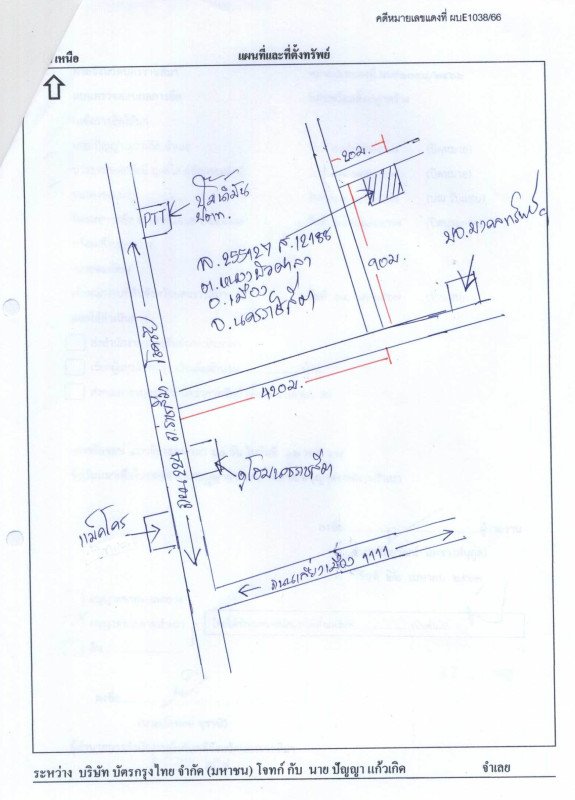 คดีหมายเลขแดงที่ ผบE1038/66
เหนือ
แผนที่และที่ตั้งทรัพย์
20ม.
PTT
ปั๊มน้ำมัน
ปตท.
ฉ.255127 ล.12188
ต.หนองบัวศาลา
อ.เมือง
จ.นครราชสีมา
90ม.
420ม.
ถนน 224
ดูโฮมนครราชสีมา
แม็คโคร
ถนนเลี่ยงเมือง 1111
ระหว่าง บริษัท บัตรกรุงไทย จำกัด (มหาชน) โจทก์ กับ นาย ปัญญา แก้วเกิด จำเลย